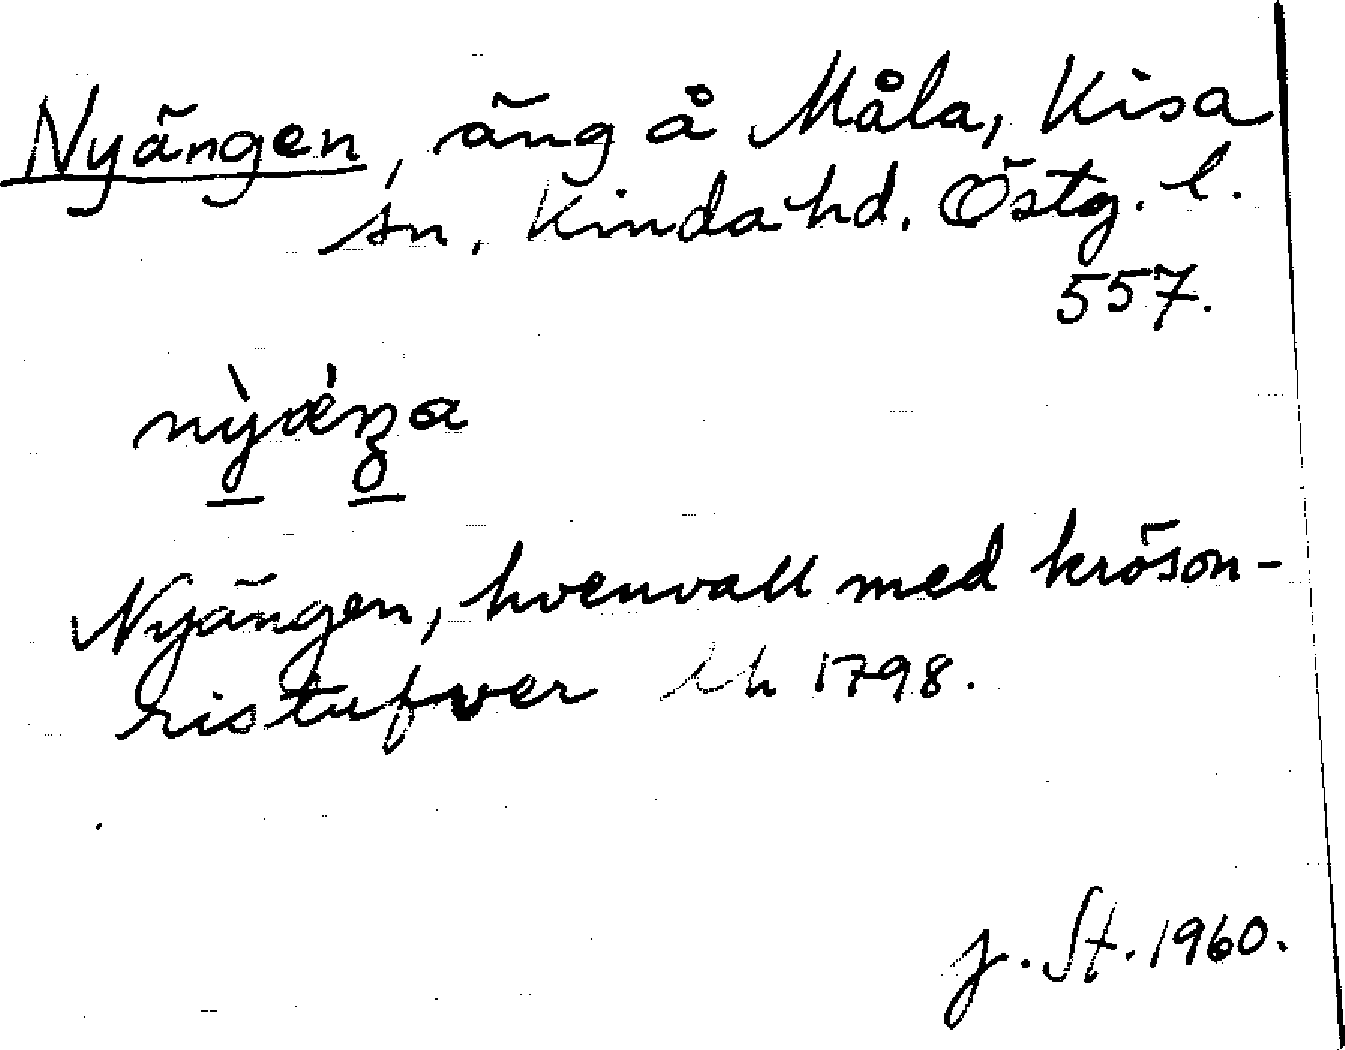 Nyängen, äng å Måla, Kisa
sn, Kinda hd. Östg. l.
557.
nỳǽŋa
Nyängen, hvenvall med kröson-
ristufver lh 1798.
J. St. 1960.